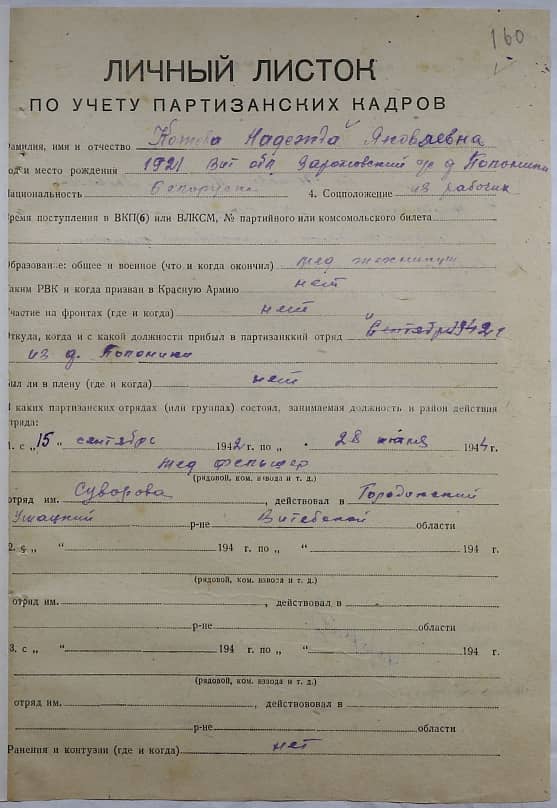 160
ЛИЧНЫЙ ЛИСТОК
ПО УЧЕТУ ПАРТИЗАНСКИХ КАДРОВ
Фамилия, имя и отчество Надежда Яковлевна
год и место рождений 1921 Вит обл д
Национальность белоруска 4. Соцположение из рабочих
Время поступления в ВКП(б) или ВЛКСМ, № партийного или комсомольского билета
Образование: общее и военное (что и когда окончил) мед техникум
Каким РВК и когда призван в Красную Армию нет
Участие на фронтах (где и когда) нет
Откуда, когда и с какой должности прибыл в партизанкий отряд сентября 1942 г
из д.
был ли в плену (где и когда) нет
В каких партизанских отрядах (или группах) состоял, занимаемая должность и район действия
отряда:
1. с „15“ сентября 1942 г. по „ 28 июня 1944 г.
мед фельшер
(рядовой, ком. взвода и т. д.)
отряд им. Суворова, действовал в
Ушацкий р-не Витебской области
2. с „ “ 194 г. по „ “ 194 г.
(рядовой, ком. взвоза и т. д.)
отряд им. , действовал в
р-не области
3. с „ “ 194 г. по „ “ 194 г.
(рядовой, ком. взвода и т. д.)
отряд им. , действововал в
р-не области
Ранения и контузии (где и когда) нет